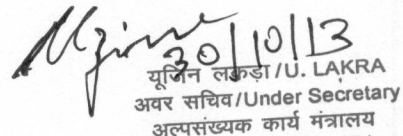 30/10/13
यूजिन लकड़ा/U. LAKRA
अवर सचिव/Under Secretary
अल्पसंख्यक कार्य मंत्रालय